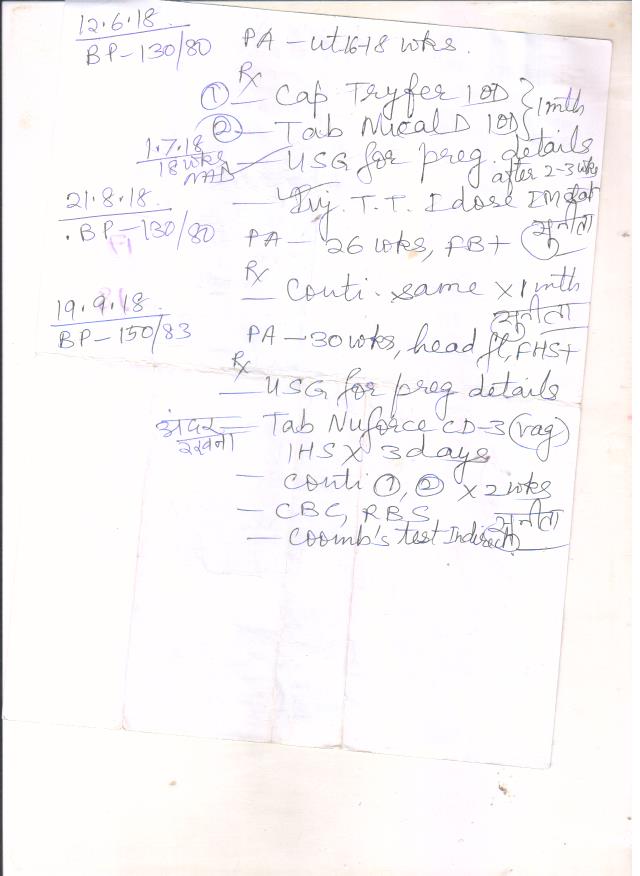 12.6.18.
BP-130/80 PA - ut 16-18 wks.
Rx
① - Cap Tryfer 1 OD } 1 mth
② - Tab Mical D 1 OD
1.7.18
18 wks
NAD
- USG for preg. details
after 2-3 wks
- Inj. T.T. I dose IM stat
सुनीता
21.8.18.
.BP-130/80 PA - 26 wks, FB+
Rx
- Conti. same x 1 mth
सुनीता
19.9.18.
BP-150/83 PA - 30 wks, head fl, FHS+
Rx
- USG for preg details
अंदर रखना - Tab Nuforce CD-3 (vag)
1HS X 3 days
- Conti ①, ② x 2 wks
- CBC, RBS
सुनीता
- Coomb's test Indirect